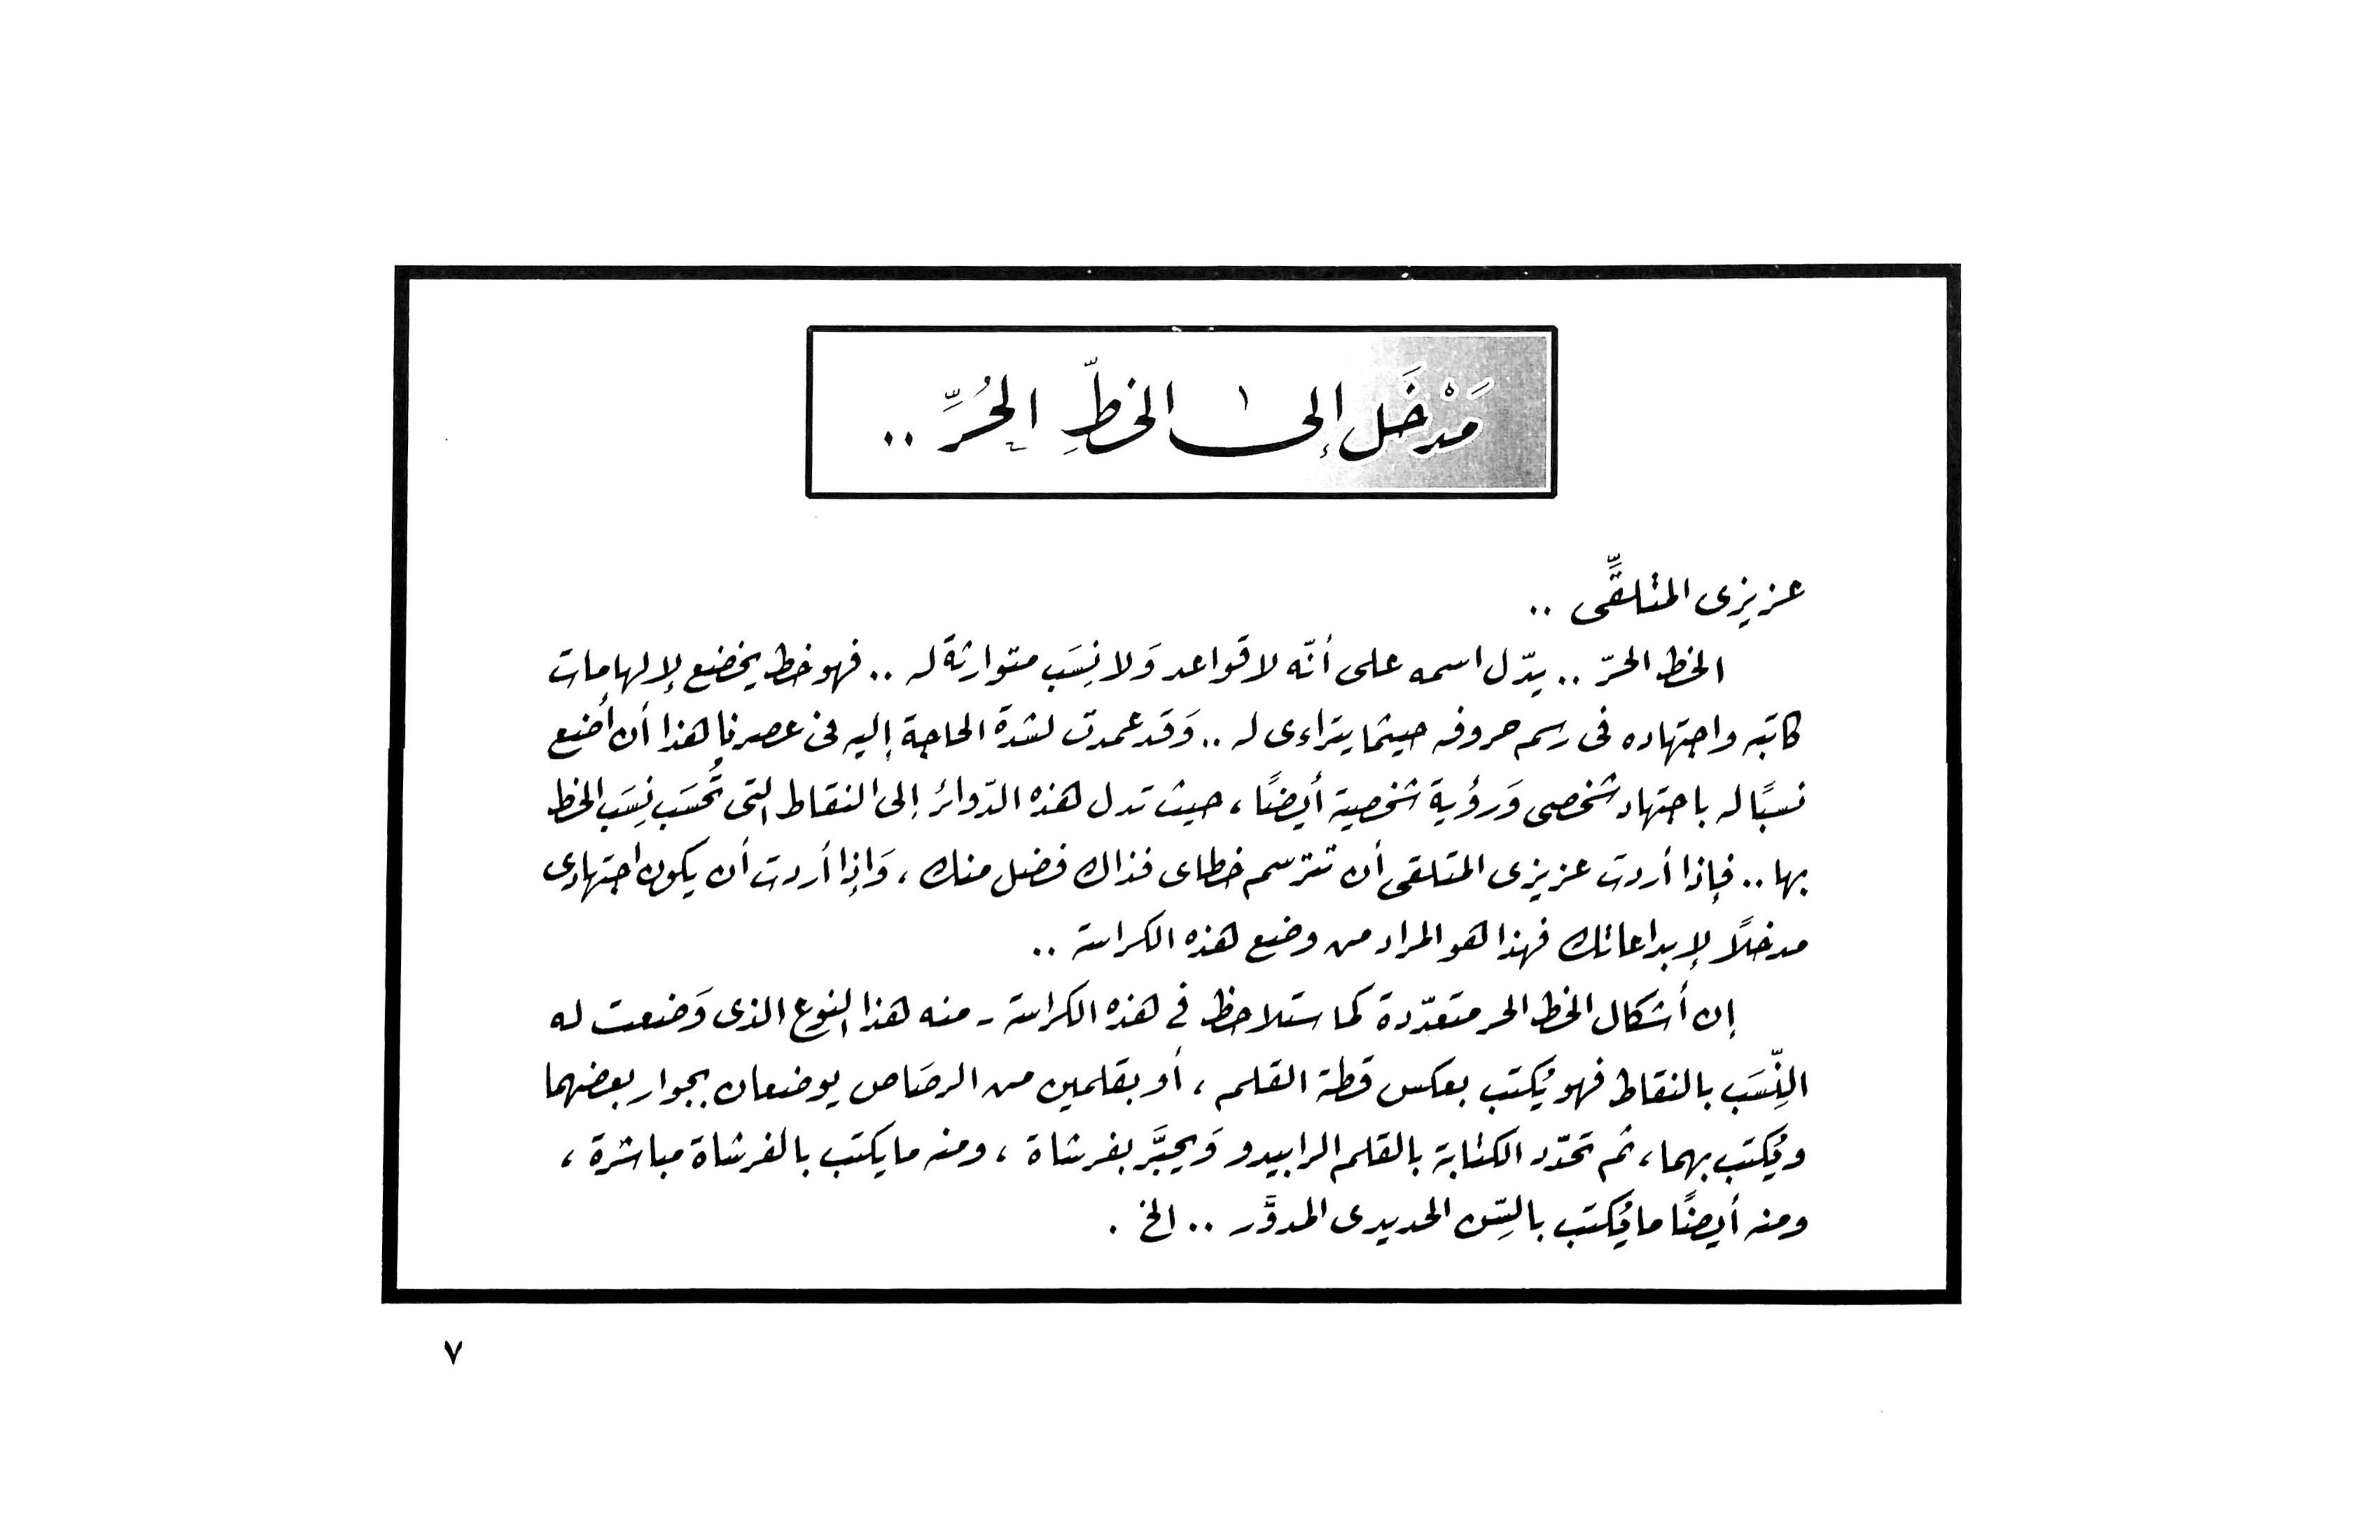 مَدْخَل إلى الخطِّ الحُرِّ ..
عزيزى المتلقِّى ..
الخط الحرّ .. يدّل اسمه على أنّه لا قواعد وَلا نِسَب متوارثة له .. فهو خط يخضع لإلهامات
كاتبه واجتهاده فى رسم حروفه حيثما يتراءى له .. وَقد عمدت لشدة الحاجة إليه فى عصرنا هذا أن أضع
نسبًا له باجتهاد شخصى وَرؤية شخصية أيضًا ، حيث تدل هذه الدّوائر إلى النقاط التى تُحسَب نِسَب الخط
بها .. فإذا أردت عزيزى المتلقى أن تترسم خطاى فذاك فضل منك ، وَإذا أردت أن يكون اجتهادى
مدخلاً لإبداعاتك فهذا هو المراد من وضع هذه الكراسة ..
إن أشكال الخط الحر متعدّدة كما ستلاحظ فى هذه الكراسة - منه هذا النوع الذى وَضعت له
النِّسَب بالنقاط فهو يُكتب بعكس قطة القلم ، أو بقلمين من الرصَاص يوضعان بجوار بعضهما
ويُكتب بهما ، ثم تحَدّد الكتابة بالقلم الرابيدو وَيحبَّر بفرشاة ، ومنه ما يكتب بالفرشاة مباشرة ،
ومنه أيضًا ما يُكتب بالسِّن الحديدى المدوَّر .. الخ .
٧